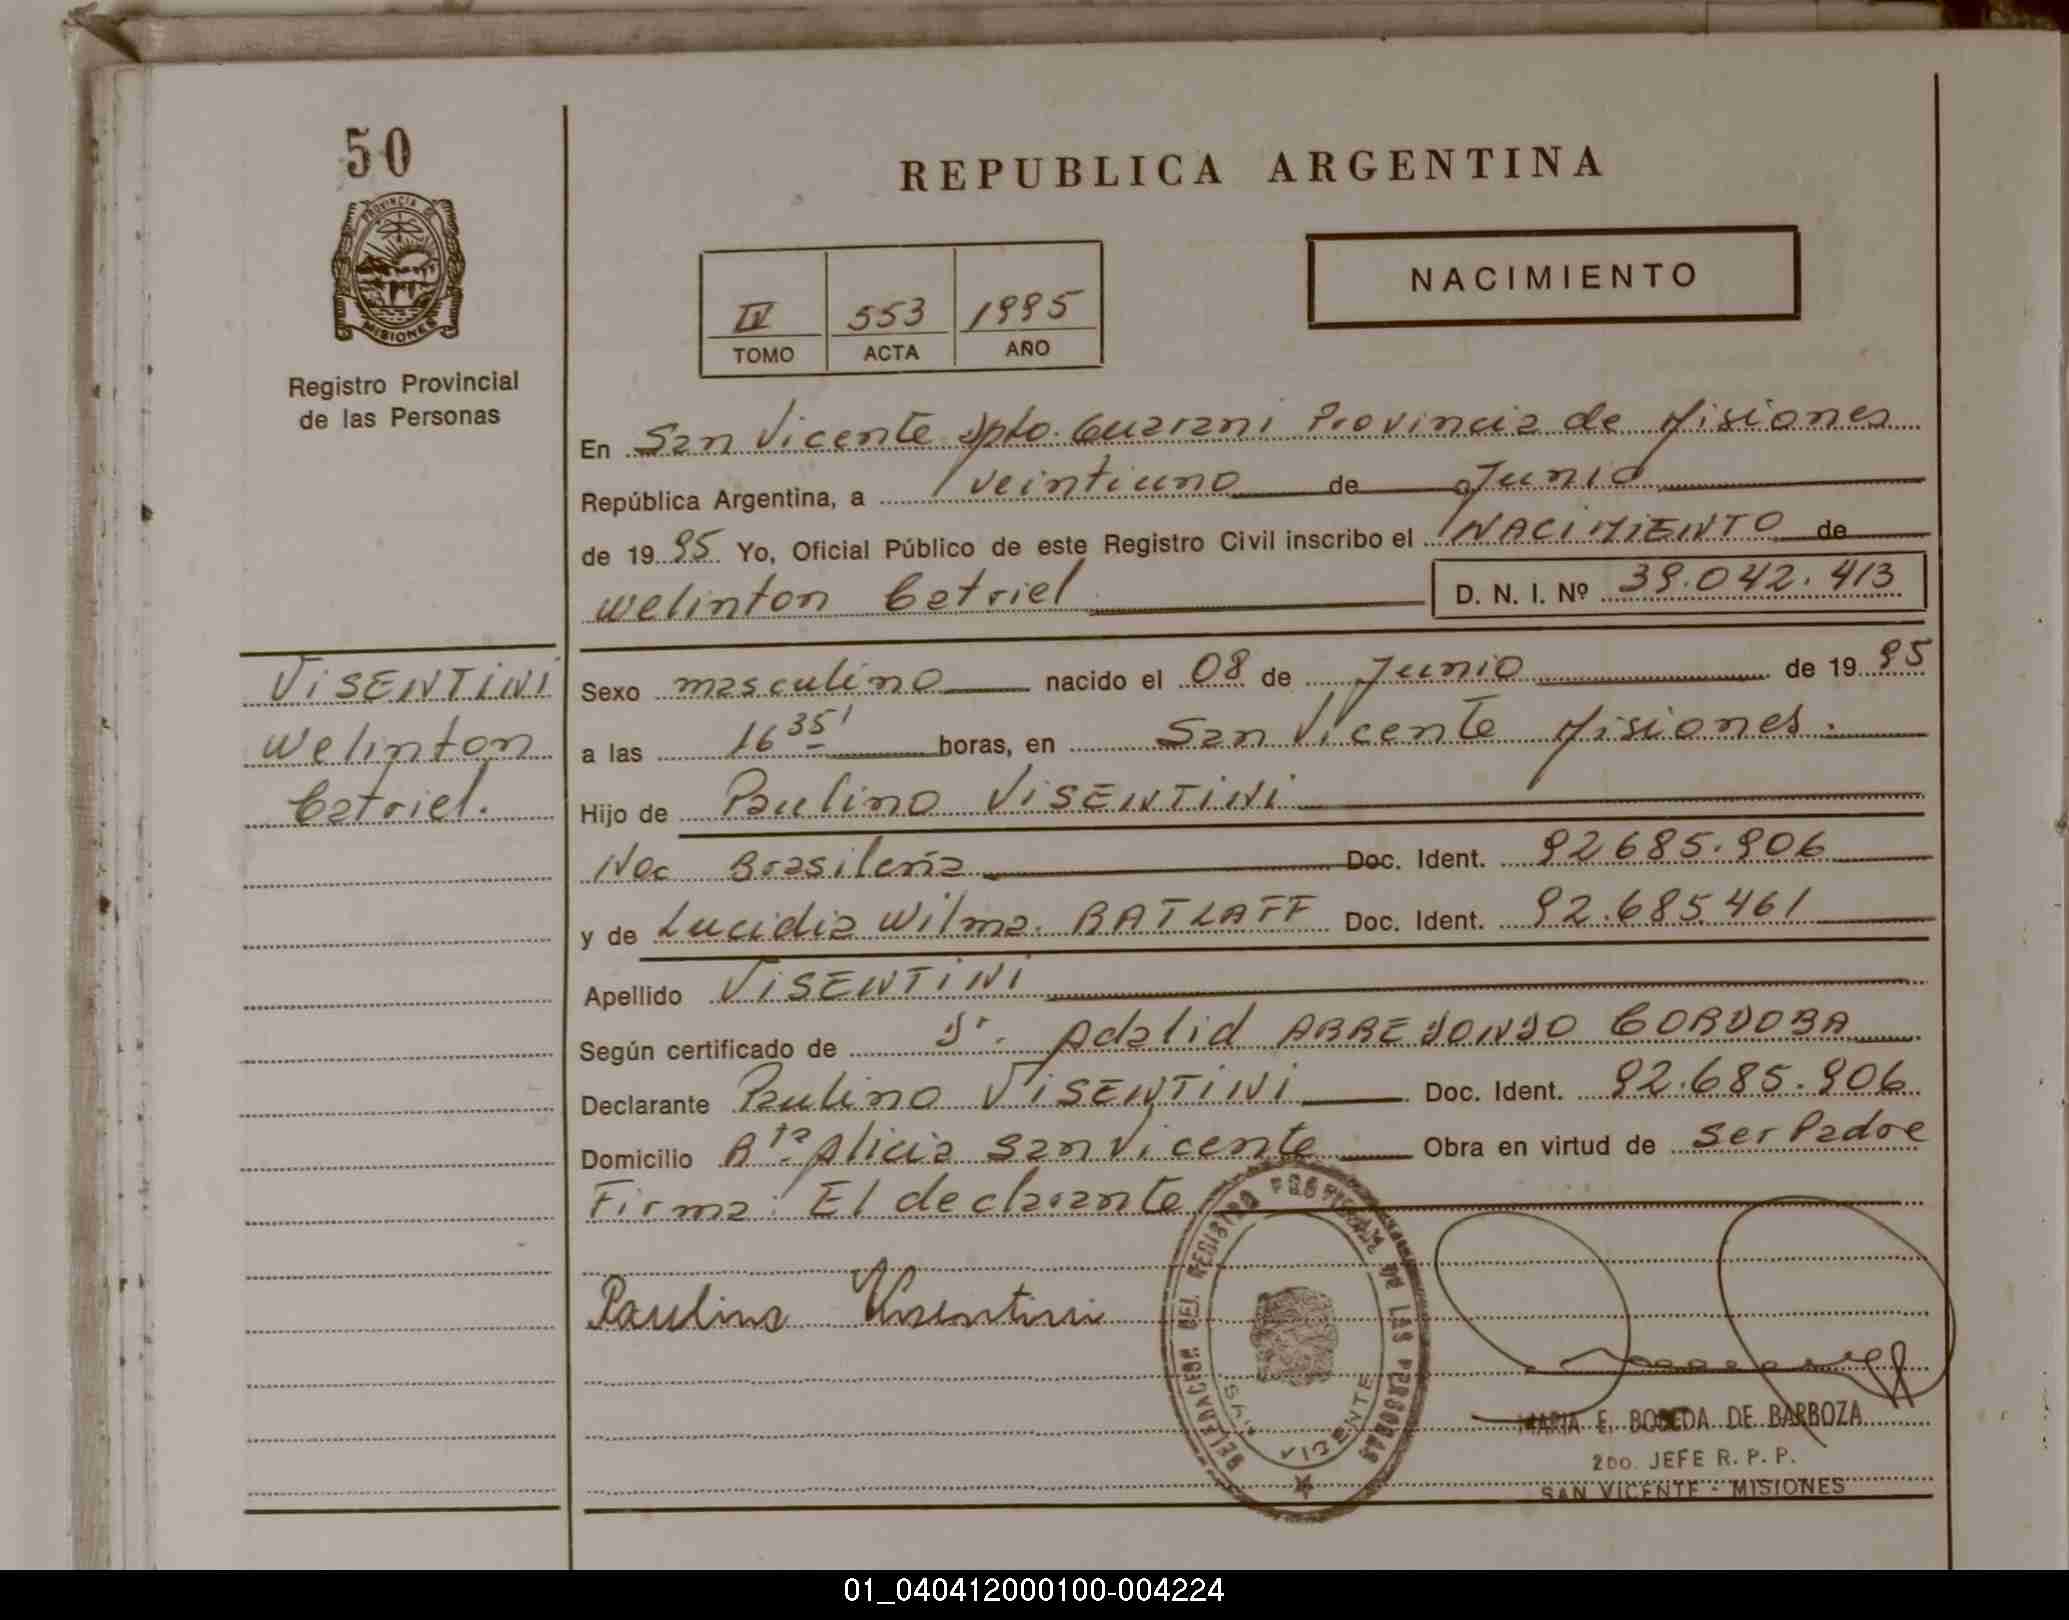 50
PROVINCIA DE
MISIONES
Registro Provincial
de las Personas
VISENTINI
Welinton
Catriel.
REPUBLICA ARGENTINA
NACIMIENTO
IV 553 1995
TOMO ACTA AÑO
En San Vicente Dpto. Guarani Provincia de Misiones
República Argentina, a veintiuno de Junio
de 1995 Yo, Oficial Público de este Registro Civil inscribo el NACIMIENTO de
Welinton Catriel D. N. I. Nº 39.042.413
Sexo masculino nacido el 08 de Junio de 1995
a las 16 35' horas, en San Vicente Misiones.
Hijo de Paulino VISENTINI
Nac Brasileña Doc. Ident. 92685.906
y de Lucidia Wilma RATLAFF Doc. Ident. 92.685.461
Apellido VISENTINI
Según certificado de Dr. Adalid ARREDONDO CORDOBA
Declarante Paulino VISENTINI Doc. Ident. 92.685.906
Domicilio Rta Alicia San Vicente Obra en virtud de Ser Padre
Firma: El declarante
Paulino Visentini
DELEGACION DEL REGISTRO PROVINCIAL DE LAS PERSONAS
SAN VICENTE
MARIA E. BOBEDA DE BARBOZA
2DO. JEFE R. P. P.
SAN VICENTE - MISIONES
01_040412000100-004224